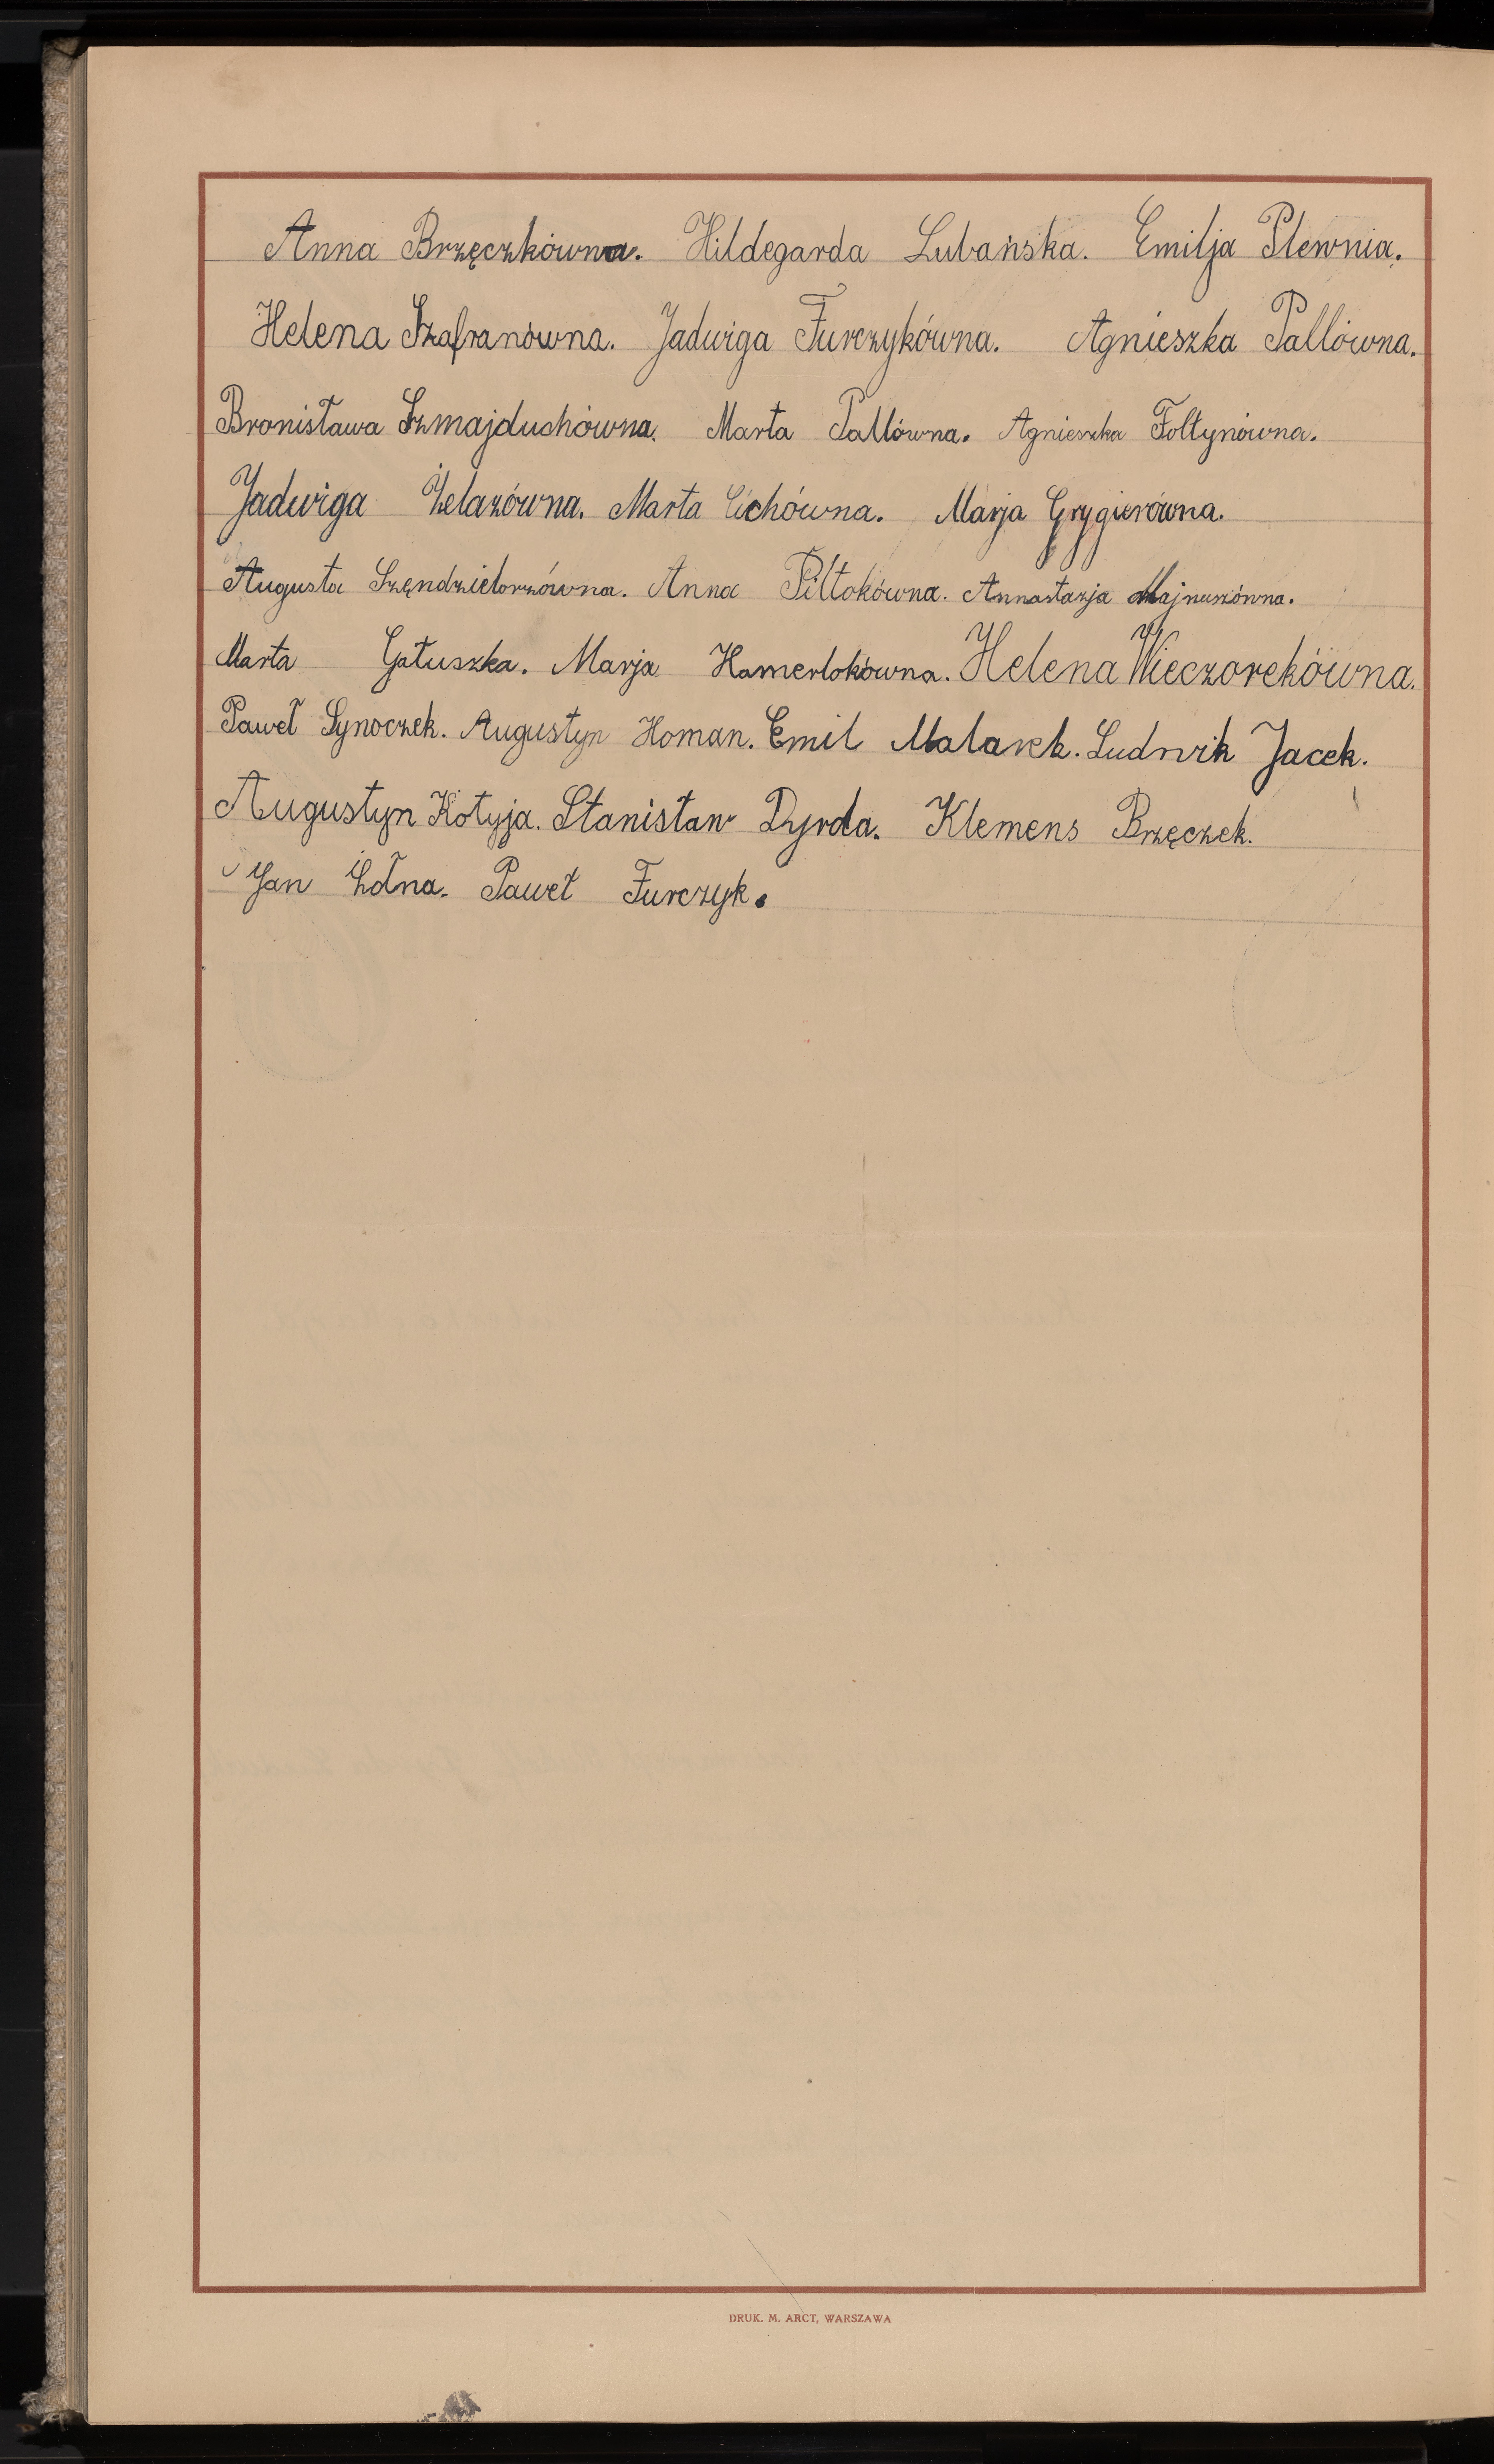 Anna Brzęczkówna. Hildegarda Lubańska. Emilja Plewnia.
Helena Szafranówna. Jadwiga Furczykówna. Agnieszka Pallówna.
Bronisława Szmajduchówna. Marta Pallówna. Agnieszka Foltynówna.
Jadwiga Żelazówna. Marta Cichówna. Marja Grygierówna.
Augusta Szęndzielorzówna. Anna Piltokówna. Annastazja Majnuszówna.
Marta Gałuszka. Marja Hamerlokówna. Helena Wieczorekówna.
Paweł Synoczek. Augustyn Homan. Emil Malarek. Ludwik Jacek.
Augustyn Kotyja. Stanisław Dyrda. Klemens Brzęczek.
Jan Żołna. Paweł Furczyk.
DRUK. M. ARCT, WARSZAWA